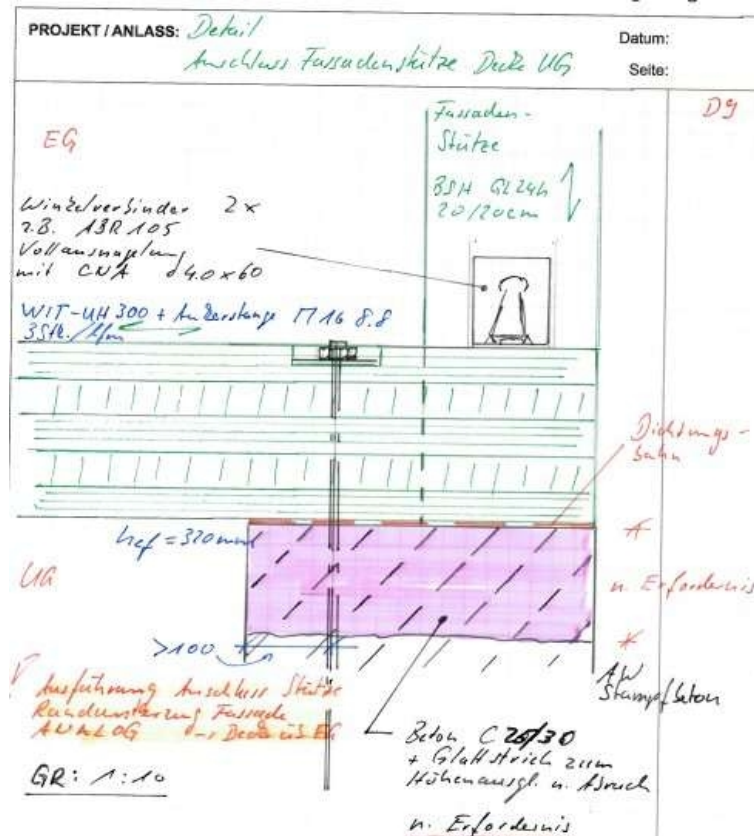 PROJEKT / ANLASS: Detail
Anschluss Fassadenstütze Decke UG
Datum:
Seite:
D9
EG
Fassaden-
Stütze
BSH GL24h
20/20cm
Winkelverbinder 2x
z.B. ABR 105
Vollausnagelung
mit CNA d4.0x60
WIT-UH 300 + Ankerstange M16 8.8
3Stk./lfm
Dichtungs-
bahn
hef = 320mm
UG
n. Erfordernis
>100
AW
Stampfbeton
Ausführung Anschluss Stütze
Fassade
ANALOG Decke üb EG
Beton C 25/30
+ Glattstrich zum
Höhenausgl. n. Abruch
GR: 1:10
n. Erfordernis